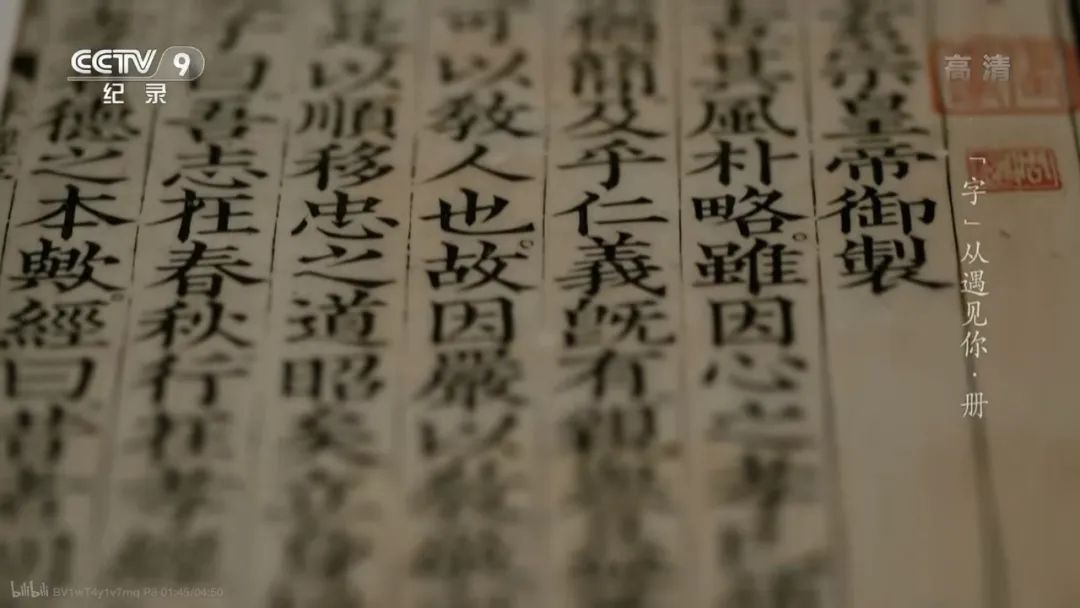 CCTV 9
纪录
高清
「字」从遇见你·册
宗皇帝御製
其風朴略。雖因心之孝
猶簡及乎仁義旣有親
可以敎人也。故因嚴以敎
以順移忠之道昭矣立
子曰吾志在春秋行在孝
德之本歟。經曰昔者明
bilibili BV1wT4y1v7mq P8 01:45/04:50